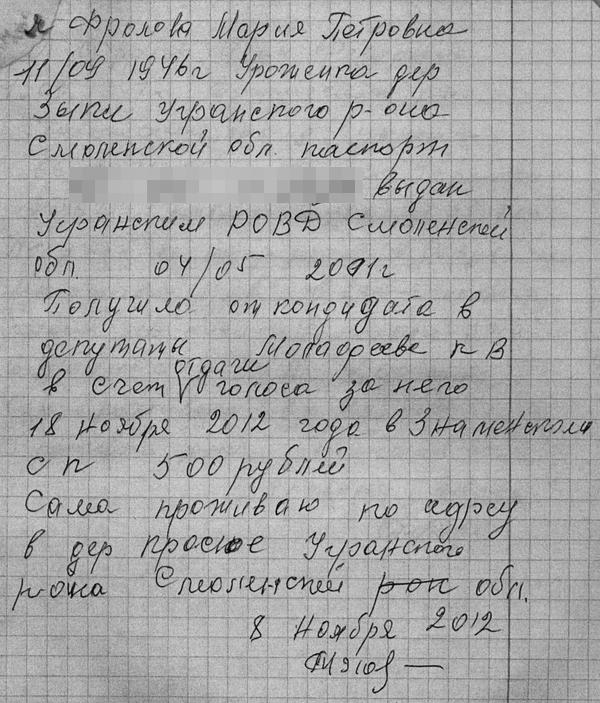 я Фролова Мария Петровна
11/09 1946г Уроженка дер
Зыки Угранского р-она
Смоленской обл. паспорт
выдан
Угранским РОВД Смоленской
обл. 04/05 2001г
Получило от кондидата в
депутаты
отдачи
в счет V голоса за него
18 ноября 2012 года в Знаменском
с п 500 рублей
Сама проживаю по адресу
в дер Угранского
р-она Смоленской обл.
8 ноября 2012